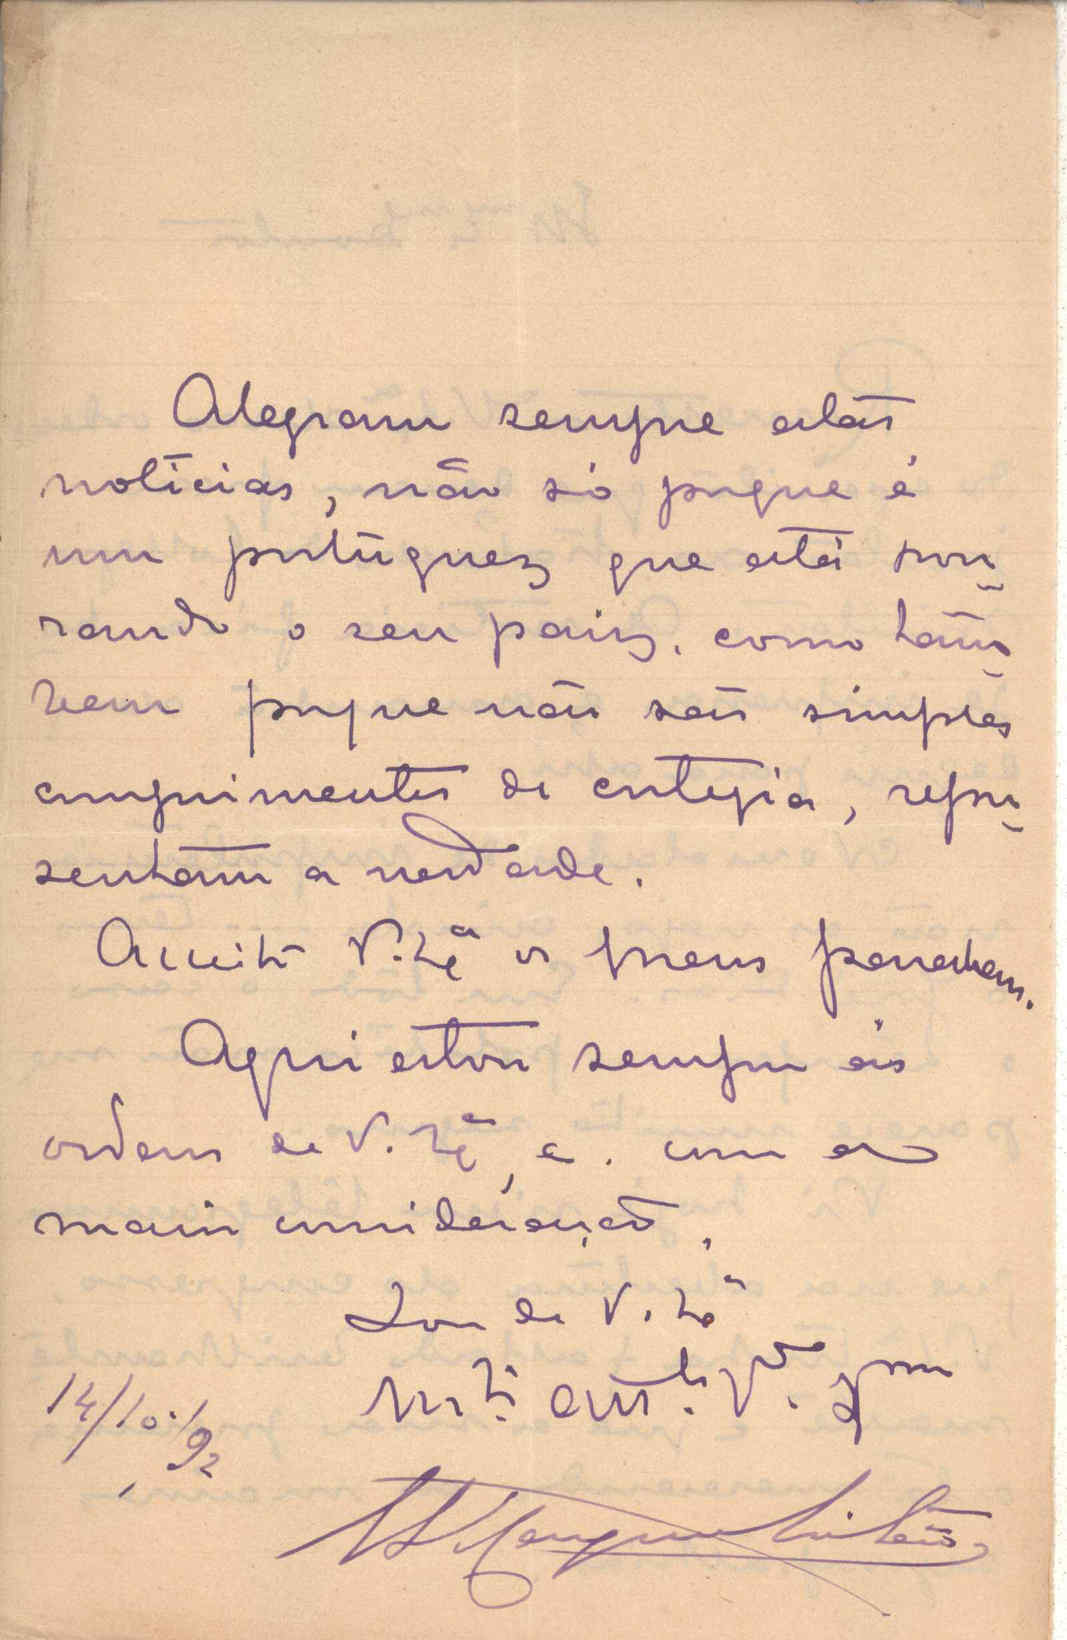 Alegram sempre estas
noticias, não só porque é
um portuguez que está hon-
rando o seu paiz, como tam-
bem porque não são simples
cumprimentos de cortezia, repre-
sentam a verdade.
Acceite V. Exª os meus parabens.
Aqui estou sempre ás
ordens de V. Exª, e com a
maior consideração,
Sou de V. Exª
M.to att.to V.or
14/10/92